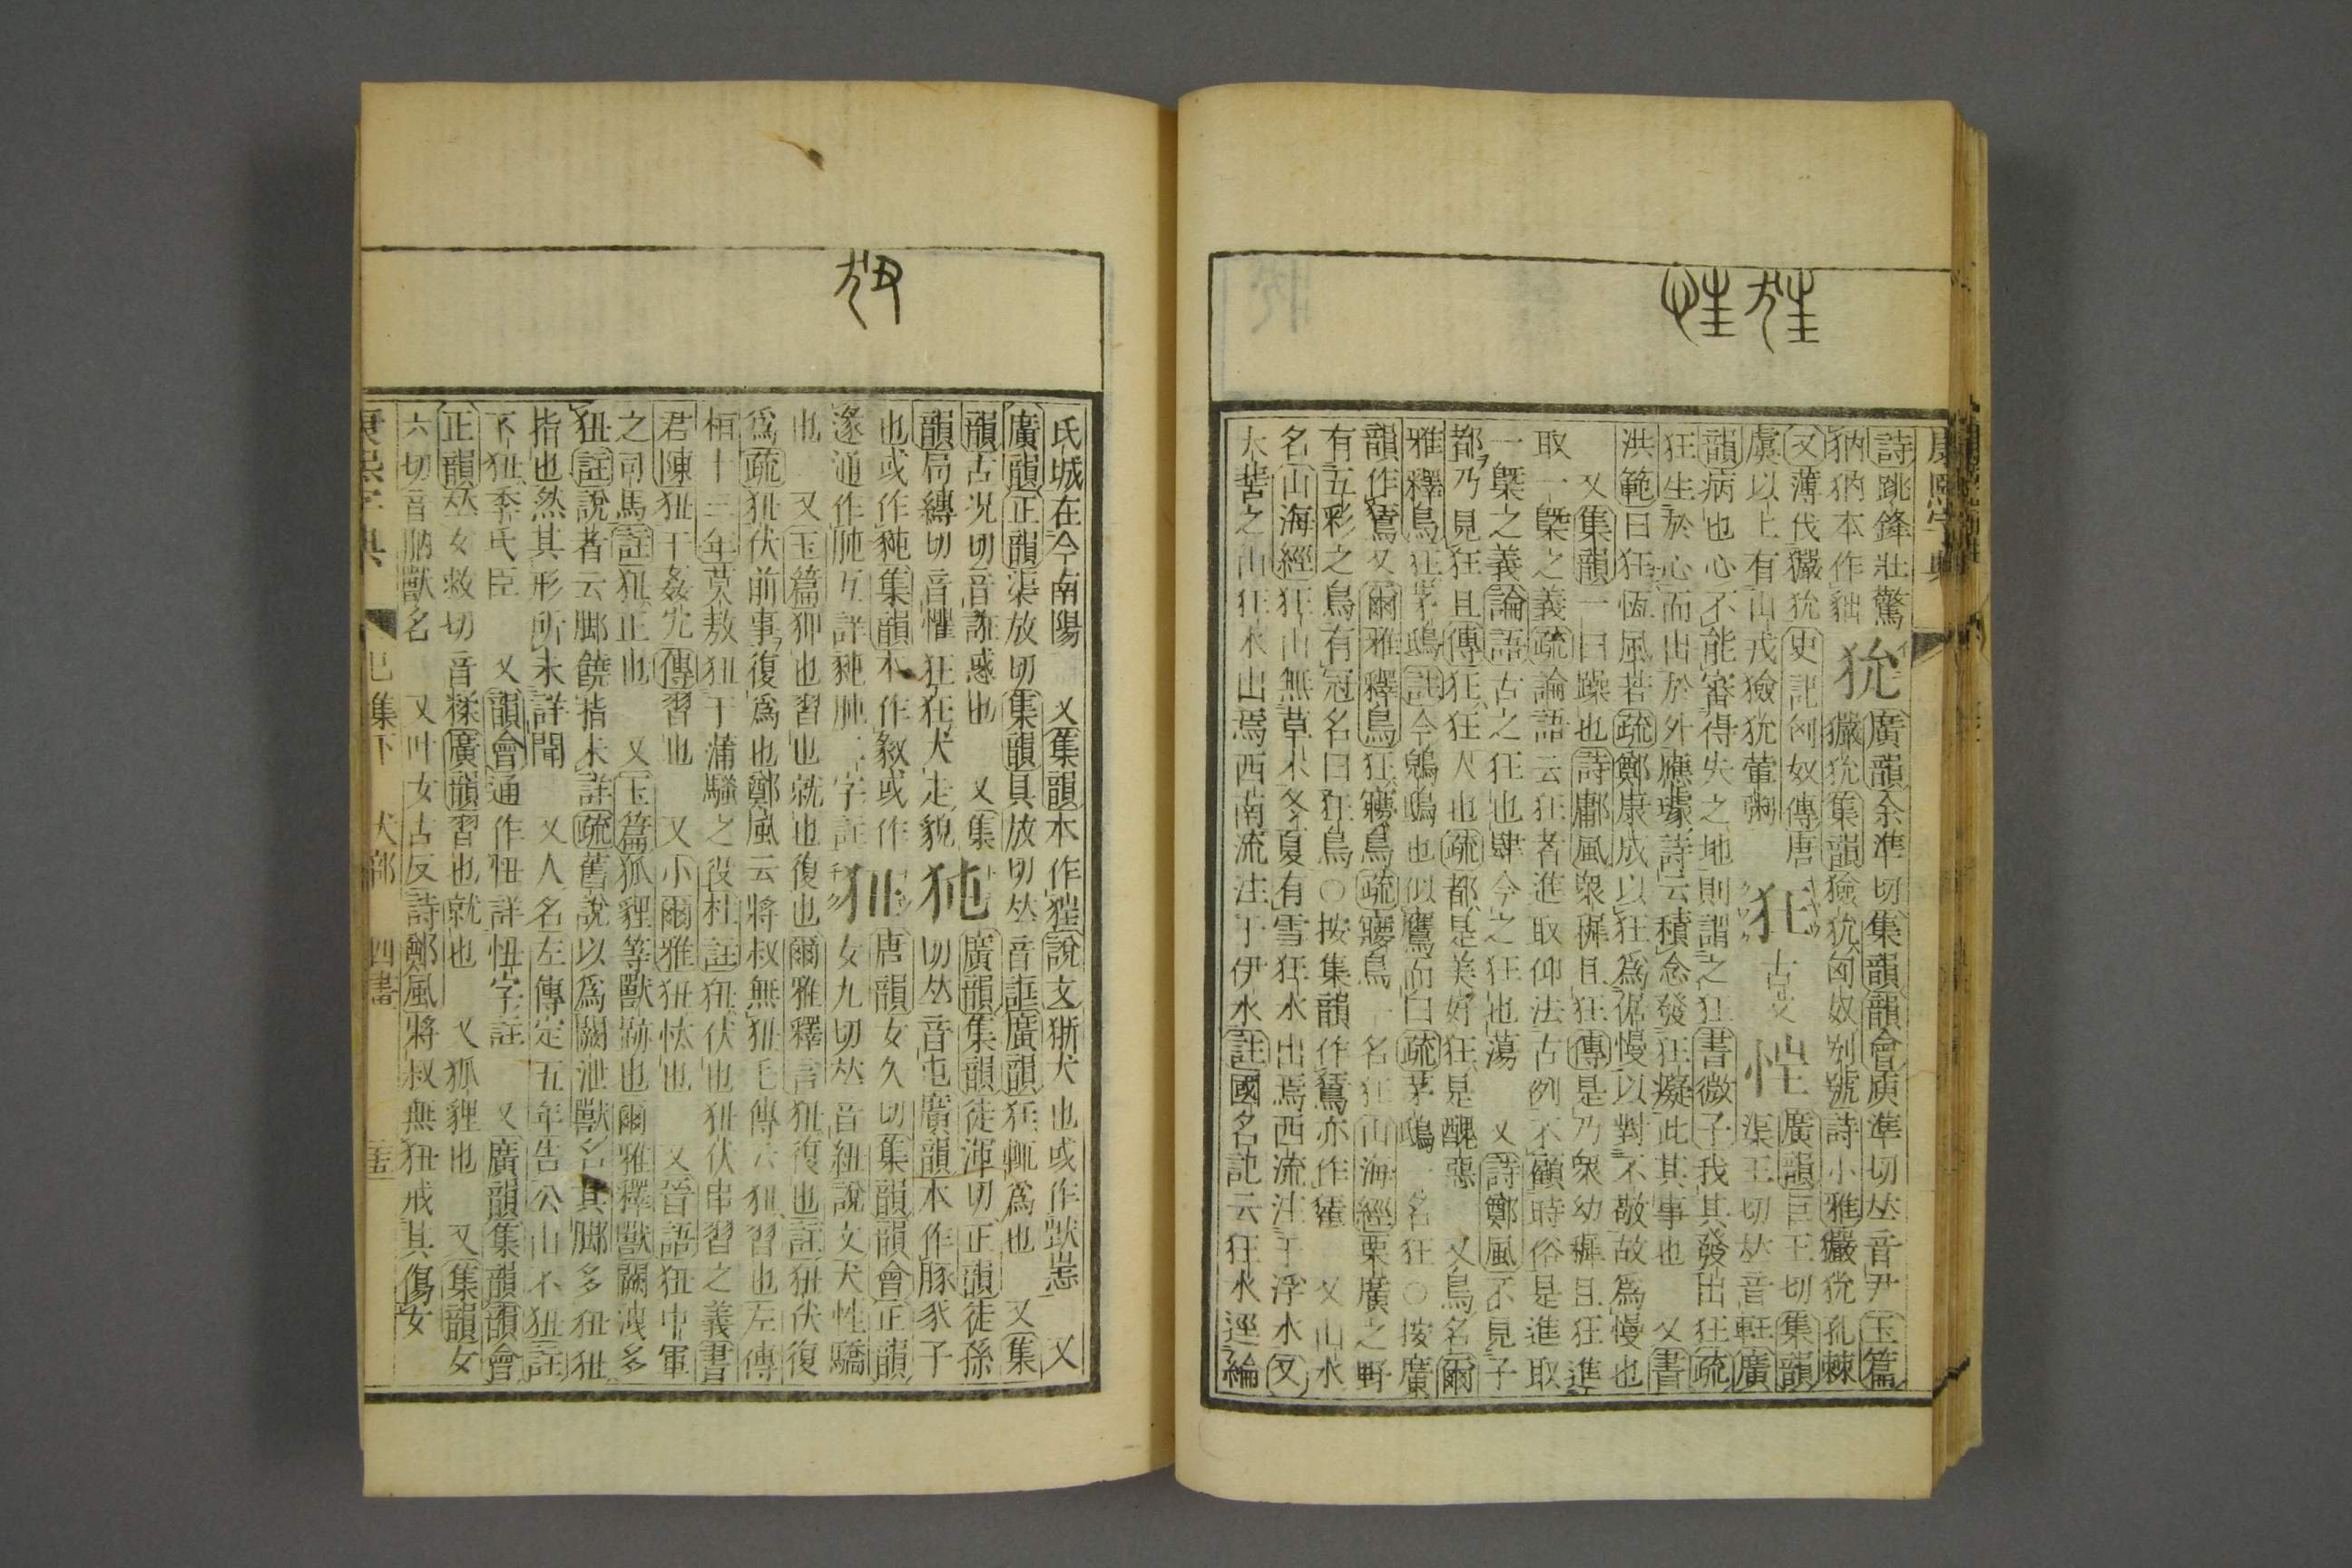 康熙字典
詩跳鋒壯驚
犹 廣韻余準切集韻韻會庾準切𠀤音尹玉篇
豽豽本作貀 玁狁集韻獫狁匈奴別號詩小雅玁狁孔棘
又薄伐玁狁史記匈奴傳唐
虞以上有山戎獫狁葷粥
狂 古文 㤮 廣韻巨王切集韻
渠王切𠀤音軖廣
韻病也心不能審得失之地則謂之狂書微子我其發出狂疏
狂生於心而出於外應璩詩云積念發狂癡此其事也 又書
洪範曰狂恆風若疏鄭康成以狂爲倨慢以對不敬故爲慢也
又集韻一曰躁也詩鄘風衆穉且狂傳是乃衆幼穉且狂進
取一槩之義疏論語云狂者進取仰法古例不顧時俗是進取
一槩之義論語古之狂也肆今之狂也蕩 又詩鄭風不見子
都乃見狂且傳狂狂人也疏都是美好狂是醜惡 又鳥名爾
雅釋鳥狂茅鴟註今鵵鴟也似鷹而白疏茅鴟一名狂○按廣
韻作鵟又爾雅釋鳥狂㝱鳥疏㝱鳥一名狂山海經栗廣之野
有五彩之鳥有冠名曰狂鳥○按集韻作鵟亦作䳸 又山水
名山海經狂山無草木冬夏有雪狂水出焉西流注于浮水又
大苦之山狂水出焉西南流注于伊水註國名記云狂水逕綸
氏城在今南陽 又集韻本作狴說文狾犬也或作㹰㤮 又
廣韻正韻渠放切集韻具放切𠀤音誑廣韻狂輒爲也 又集
韻古況切音誑惑也 又集
韻局縛切音懼狂狂犬走貌
㹠 廣韻集韻徒渾切正韻徒孫
切𠀤音屯廣韻本作豚豕子
也或作豘集韻本作豙或作
遯通作肫互詳豘肫二字註
狃 唐韻女久切集韻韻會正韻
女九切𠀤音紐說文犬性驕
也 又玉篇狎也習也就也復也爾雅釋言狃復也註狃伏復
爲疏狃伏前事復爲也鄭風云將叔無狃毛傳云狃習也左傳
桓十三年莫敖狃于蒲騷之役杜註狃伏也狃伏串習之義書
君陳狃于姦宄傳習也 又小爾雅狃忕也 又晉語狃中軍
之司馬註狃正也 又玉篇狐貍等獸跡也爾雅釋獸闕洩多
狃註說者云腳饒指未詳疏舊說以爲闕泄獸名其腳多狃狃
指也然其形所未詳聞 又人名左傳定五年告公山不狃註
不狃季氏臣 又韻會通作忸詳忸字註 又廣韻集韻韻會
正韻𠀤女救切音糅廣韻習也就也 又狐貍也 又集韻女
六切音朒獸名 又叶女古反詩鄭風將叔無狃戒其傷女
康熙字典 巳集下 犬部 四畫